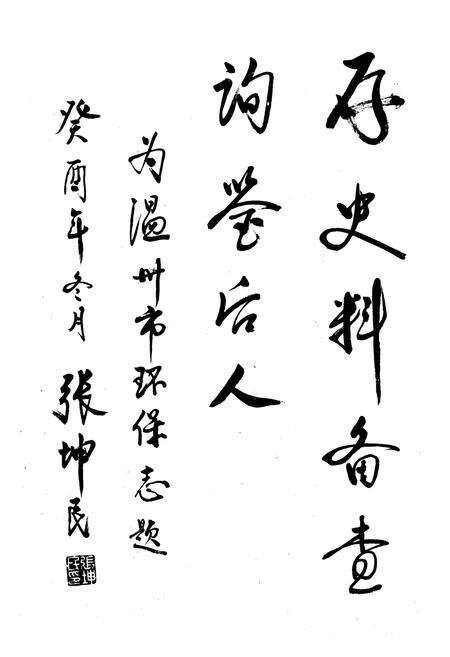 存史料备查
询鉴后人
为温州市环保志题
癸酉年冬月 张坤民
张坤民印